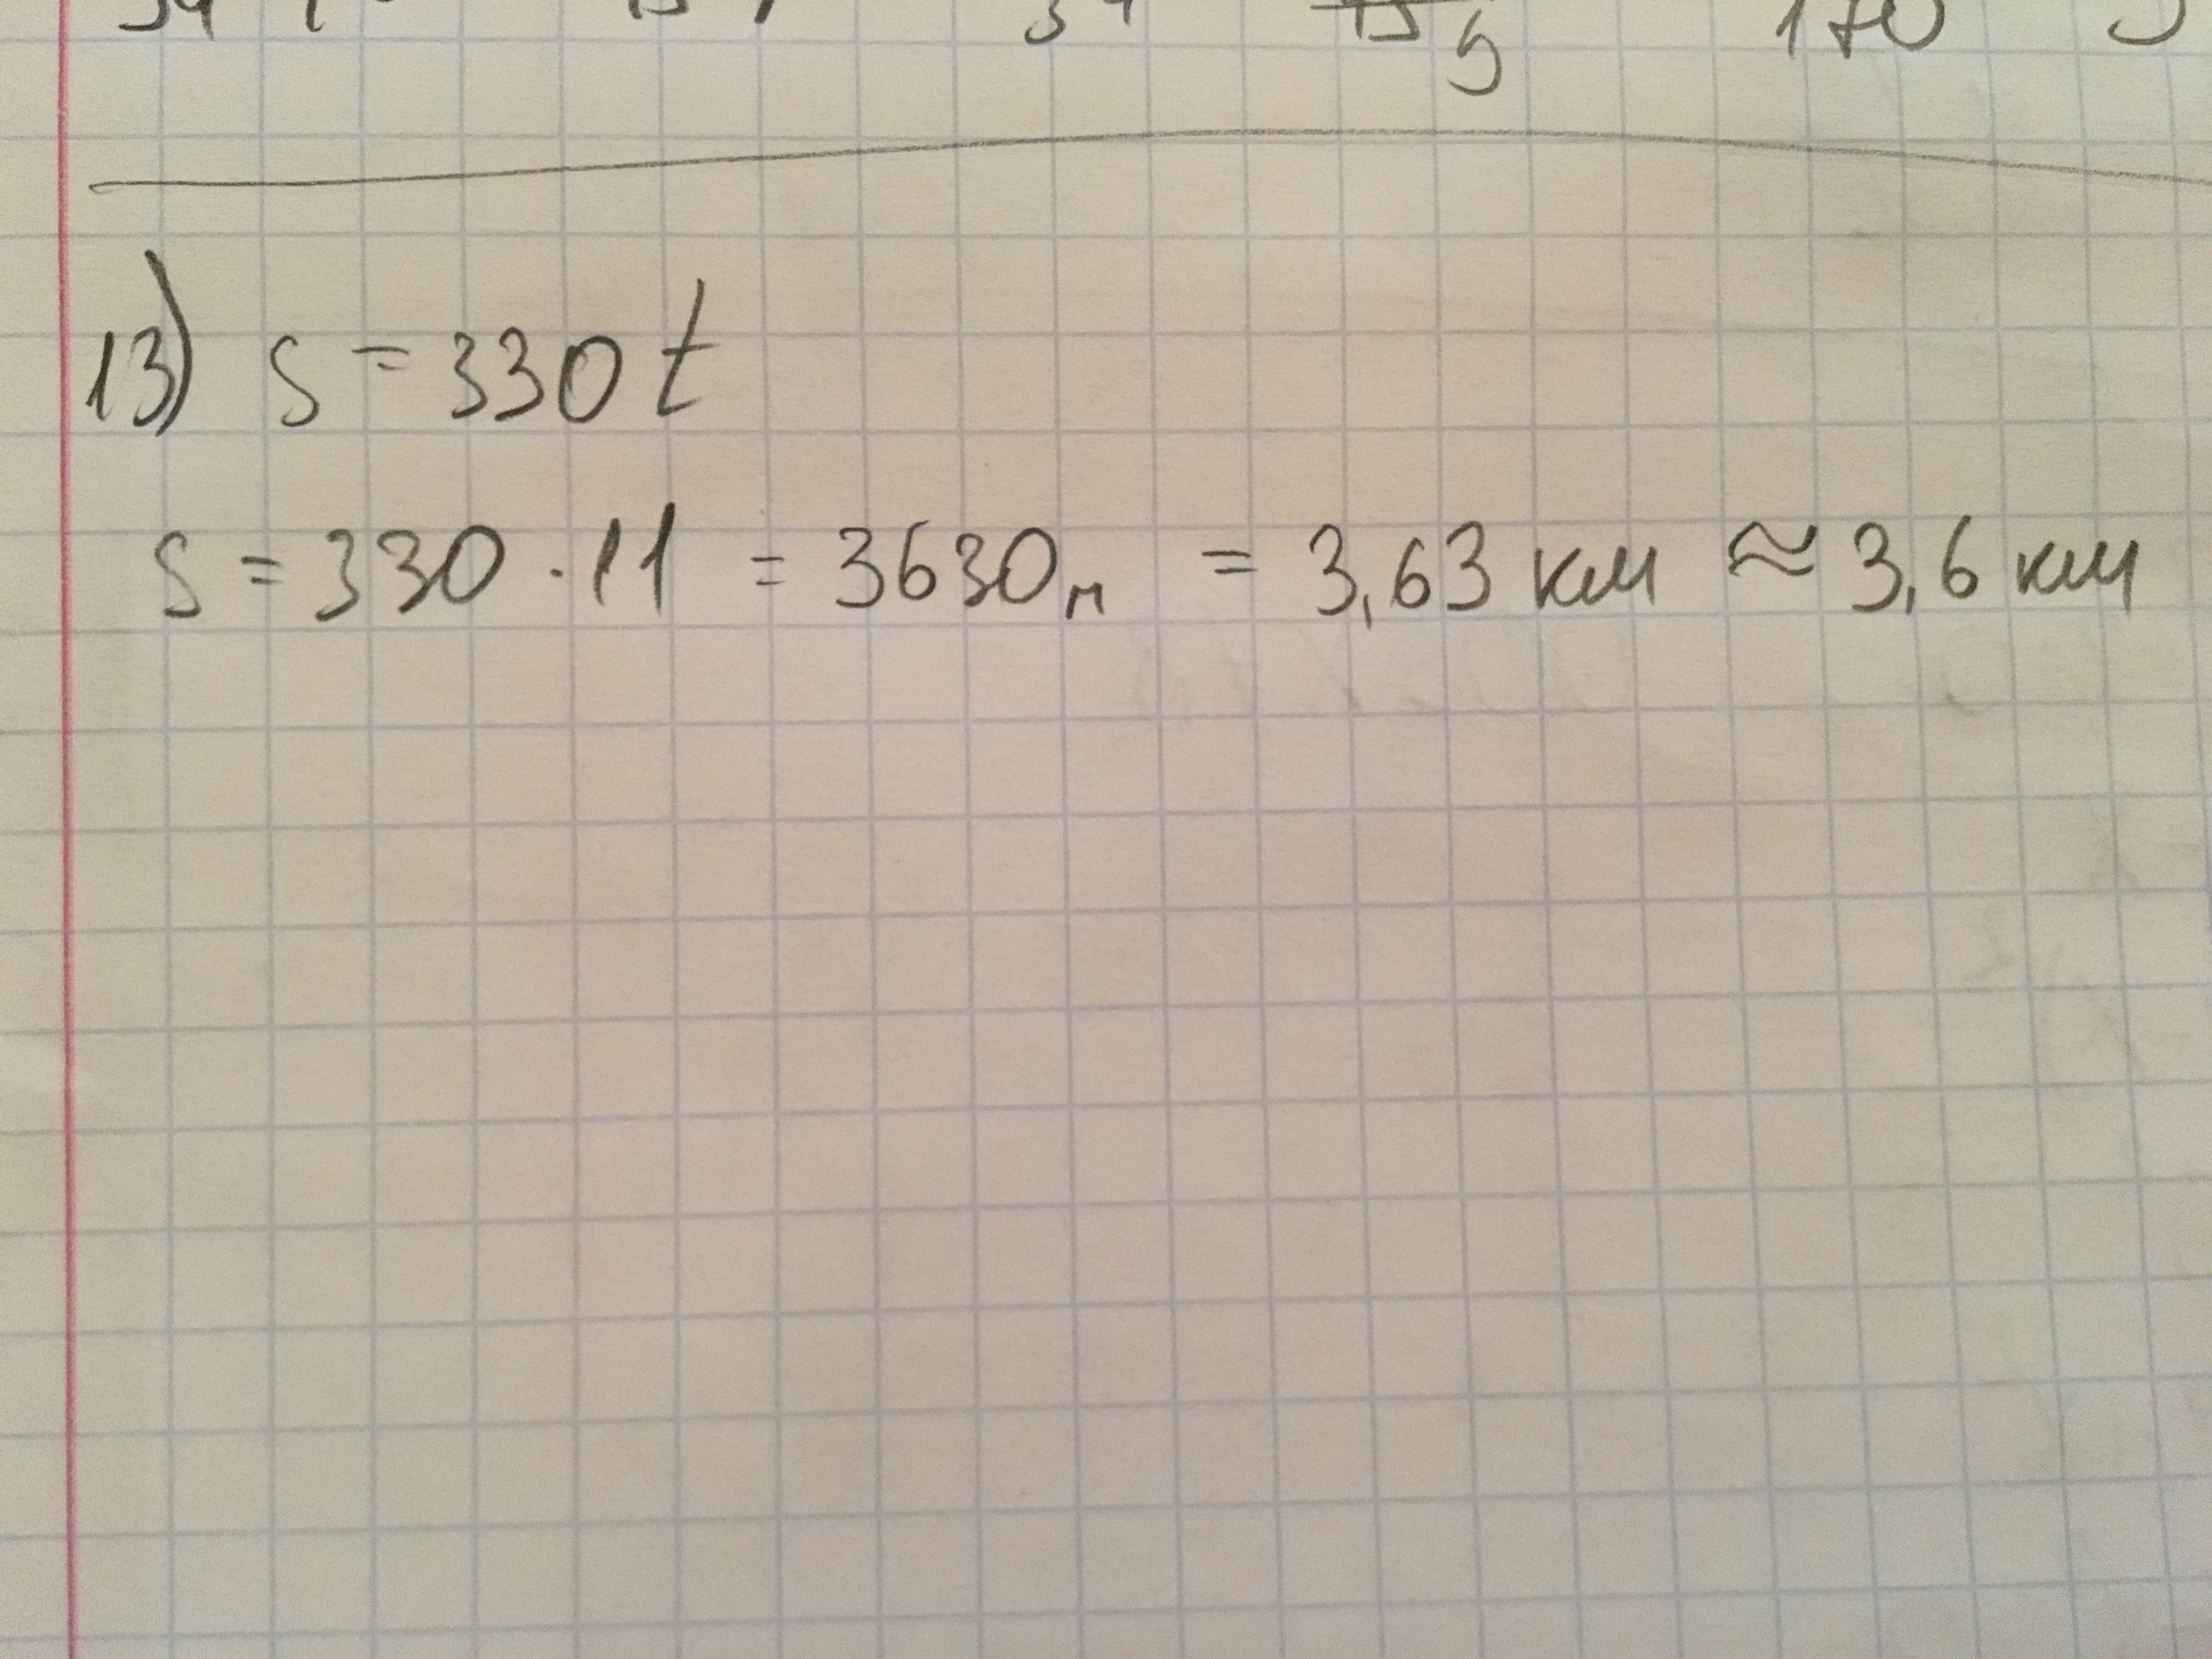 170
13) S = 330 t
S = 330 · 11 = 3630 м = 3,63 км ≈ 3,6 км